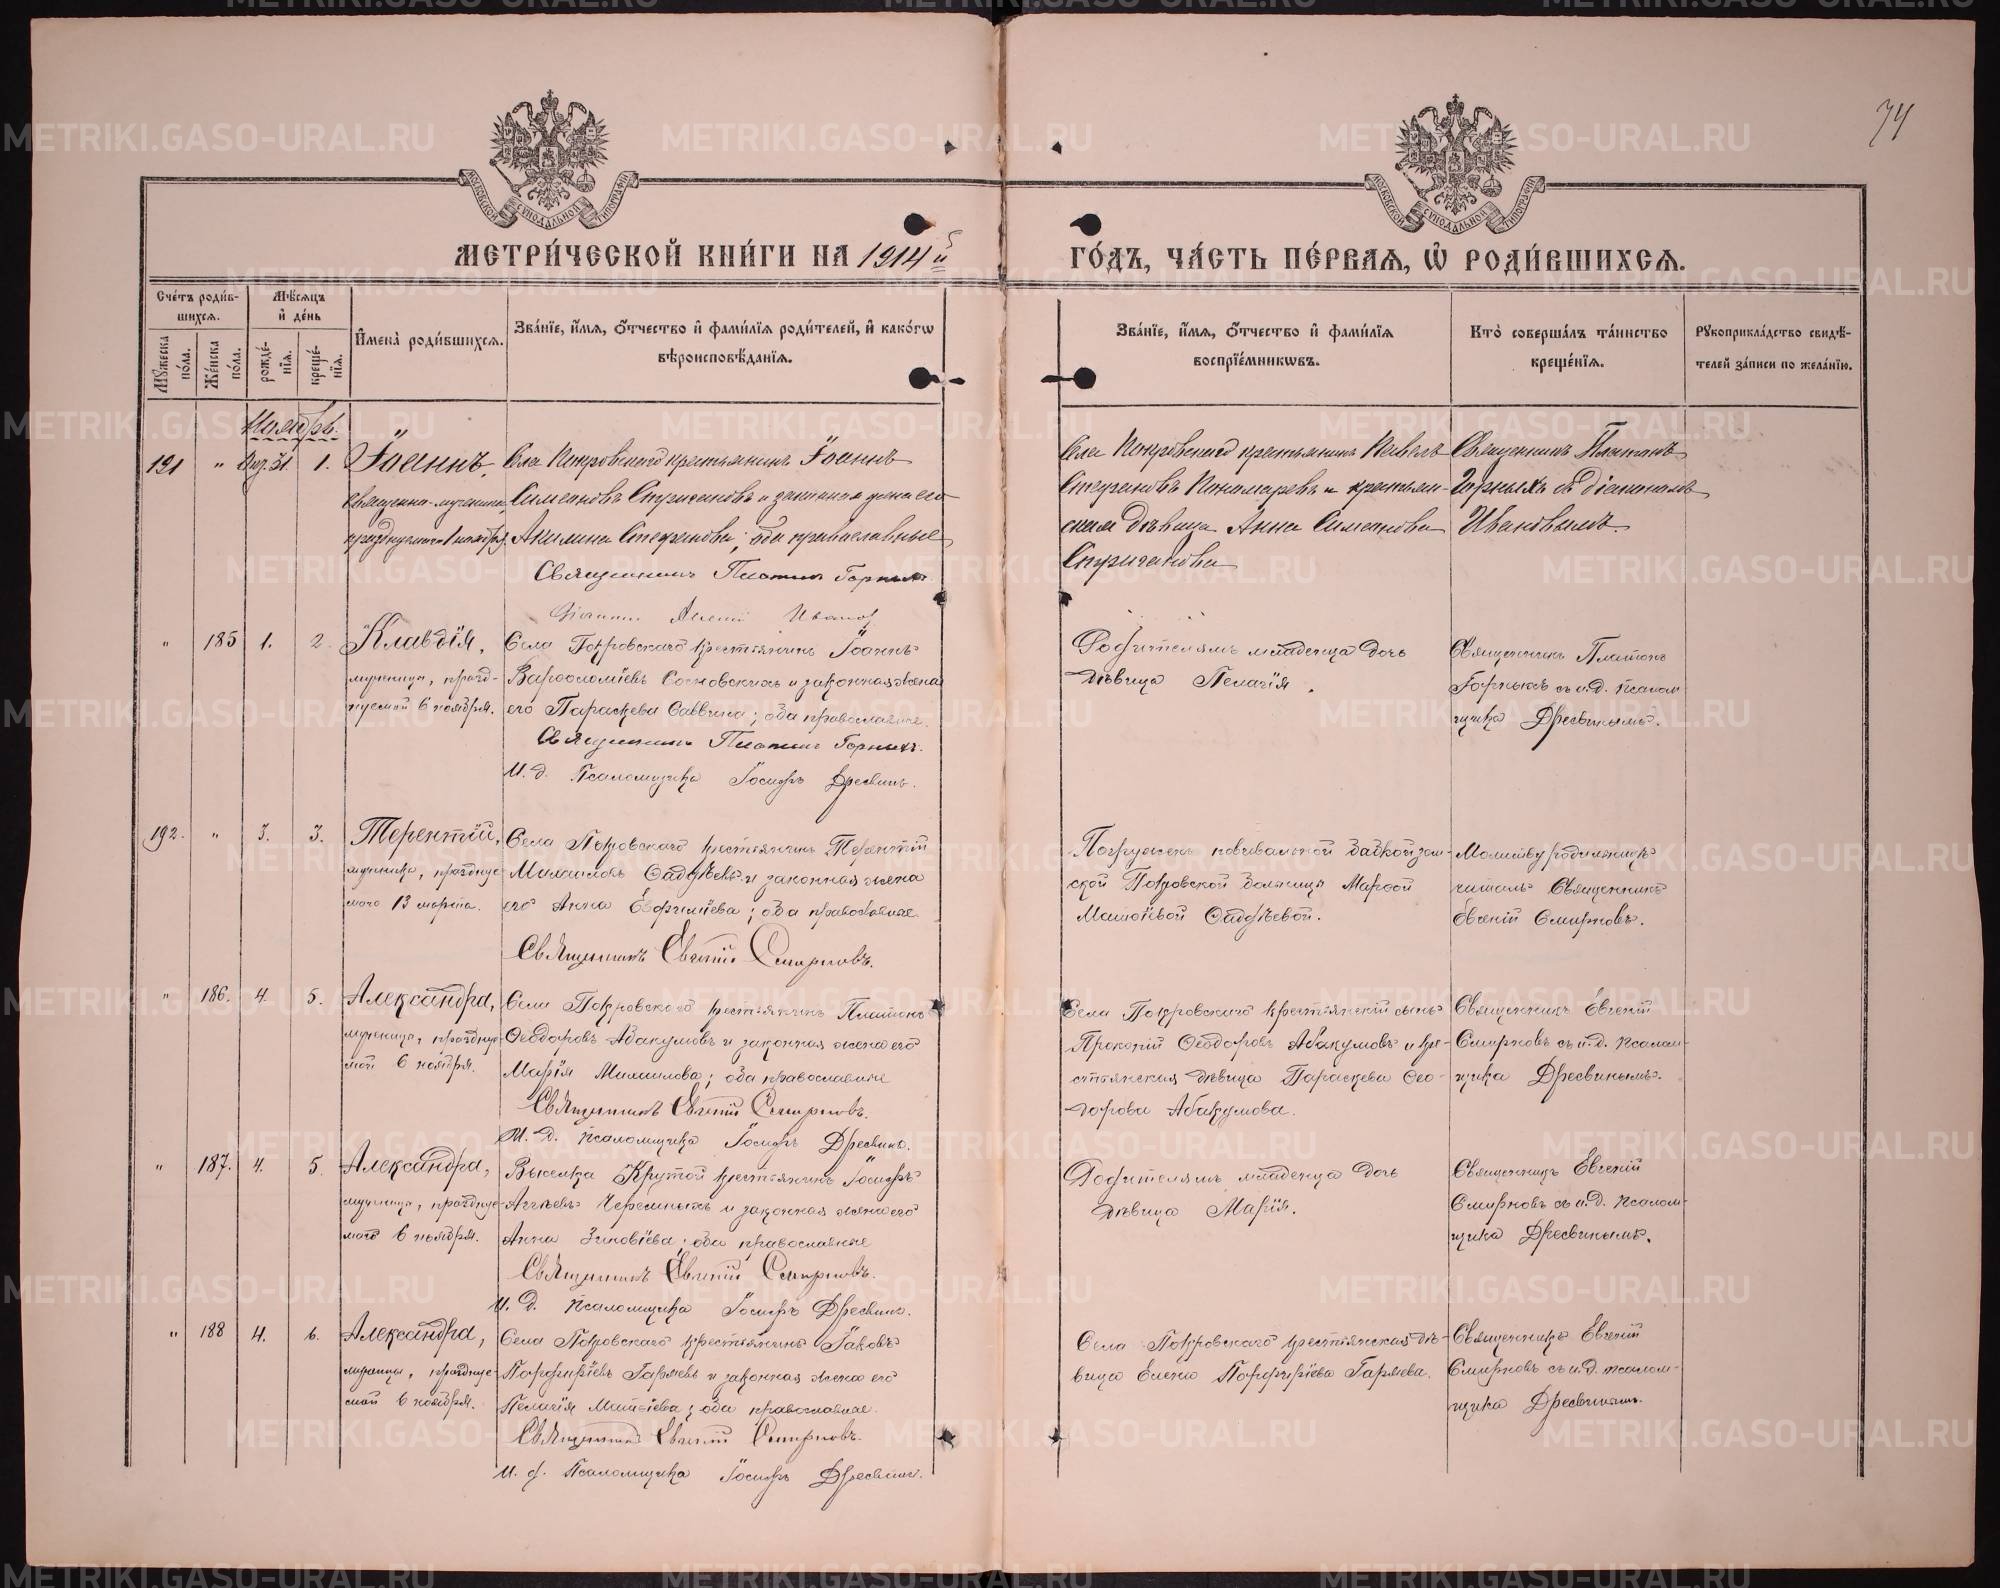 74
МЕТРИ́ЧЕСКОЙ КНИ́ГИ НА 1914й
ГО́ДЪ, ЧА́СТЬ ПЕ́РВАЯ, Ѡ РОДИ́ВШИХСЯ.
Сче́тъ роди́вшихся.
Му́жеска по́ла.
Же́нска по́ла.
Мѣ́сяцъ и де́нь
рожде́нія.
креще́нія.
Имена̀ роди́вшихся.
Зва́ніе, и́мя, о́тчество и фами́лія роди́телей, и како́гѡ
вѣроисповѣ́данія.
Зва́ніе, и́мя, о́тчество и фами́лія
воспріе́мникѡвъ.
Кто̀ соверша́лъ та́инство
креще́нія.
Рукоприкла́дство свидѣ́-
телей за́писи по жела́нію.
Ноябрь.
191 " Окт. 31. 1. Іоаннъ,
священно-мученика,
празднуемаго 1 ноября.
Села Покровскаго крестьянинъ Іоаннъ
Симеоновъ Стригановъ и законная жена его
Акилина Стефанова; оба православные
Священникъ Платонъ Горныхъ
Діаконъ Иванов
Села Покровскаго крестьянинъ Павелъ
Стефановъ Пономаревъ и крестьян-
ская дѣвица Анна Симеонова
Стриганова
Священникъ Платонъ
Горныхъ съ діакономъ
Ивановымъ.
" 185 1. 2. Клавдія,
мученицы, празд-
нуемой 6 ноября.
Села Покровскаго крестьянинъ Іоаннъ
Варфоломіевъ Сосновскихъ и законная жена
его Параскева Саввина; оба православные.
Священникъ Платонъ Горныхъ.
И. д. Псаломщика Іосифъ Дресвинъ.
Родителямъ младенца дочь
дѣвица Пелагія.
Священникъ Платонъ
Горныхъ съ и. д. псалом-
щика Дресвинымъ.
192. " 3. 3. Терентій,
мученика, праздну-
маго 13 марта.
Села Покровскаго крестьянинъ Терентій
Михаиловъ Авдѣевъ и законная жена
его Анна Евфиміева; оба православные.
Священникъ Евгеній Смирновъ.
Погруженъ повивальной бабкой зем-
ской Покровской больницы Марѳой
Авдѣевой.
Молитву родильницѣ
читалъ Священникъ
Евгеній Смирновъ.
" 186. 4. 5. Александра,
мученицы, праздну-
мой 6 ноября.
Села Покровскаго крестьянинъ Платонъ
Ѳеодоровъ Абакумовъ и законная жена его
Марія Михаилова; оба православные
Священникъ Евгеній Смирновъ.
И. д. псаломщика Іосифъ Дресвинъ.
Села Покровскаго крестьянскій сынъ
Прокопій Ѳеодоровъ Абакумовъ и кре-
стьянская дѣвица Параскева Ѳео-
дорова Абакумова.
Священникъ Евгеній
Смирновъ съ и. д. псалом-
щика Дресвинымъ.
" 187. 4. 5. Александра,
мученицы, праздну-
маго 6 ноября.
Выселка Крутой крестьянинъ Іосифъ
Аггѣевъ Черемныхъ и законная жена его
Анна Зиновіева; оба православные
Священникъ Евгеній Смирновъ.
И. д. псаломщика Іосифъ Дресвинъ.
Родителямъ младенца дочь
дѣвица Марія.
Священникъ Евгеній
Смирновъ съ и. д. псалом-
щика Дресвинымъ.
" 188 4. 6. Александра,
мученицы, праздну-
емой 6 ноября.
Села Покровскаго крестьянинъ Іаковъ
Порфиріевъ Гаряевъ и законная жена его
Пелагія Матѳіева; оба православные.
Священникъ Евгеній Смирновъ.
И. д. Псаломщика Іосифъ Дресвинъ.
Села Покровскаго крестьянская дѣ-
вица Елена Порфиріева Гаряева.
Священникъ Евгеній
Смирновъ съ и. д. псалом-
щика Дресвинымъ.
METRIKI.GASO-URAL.RU